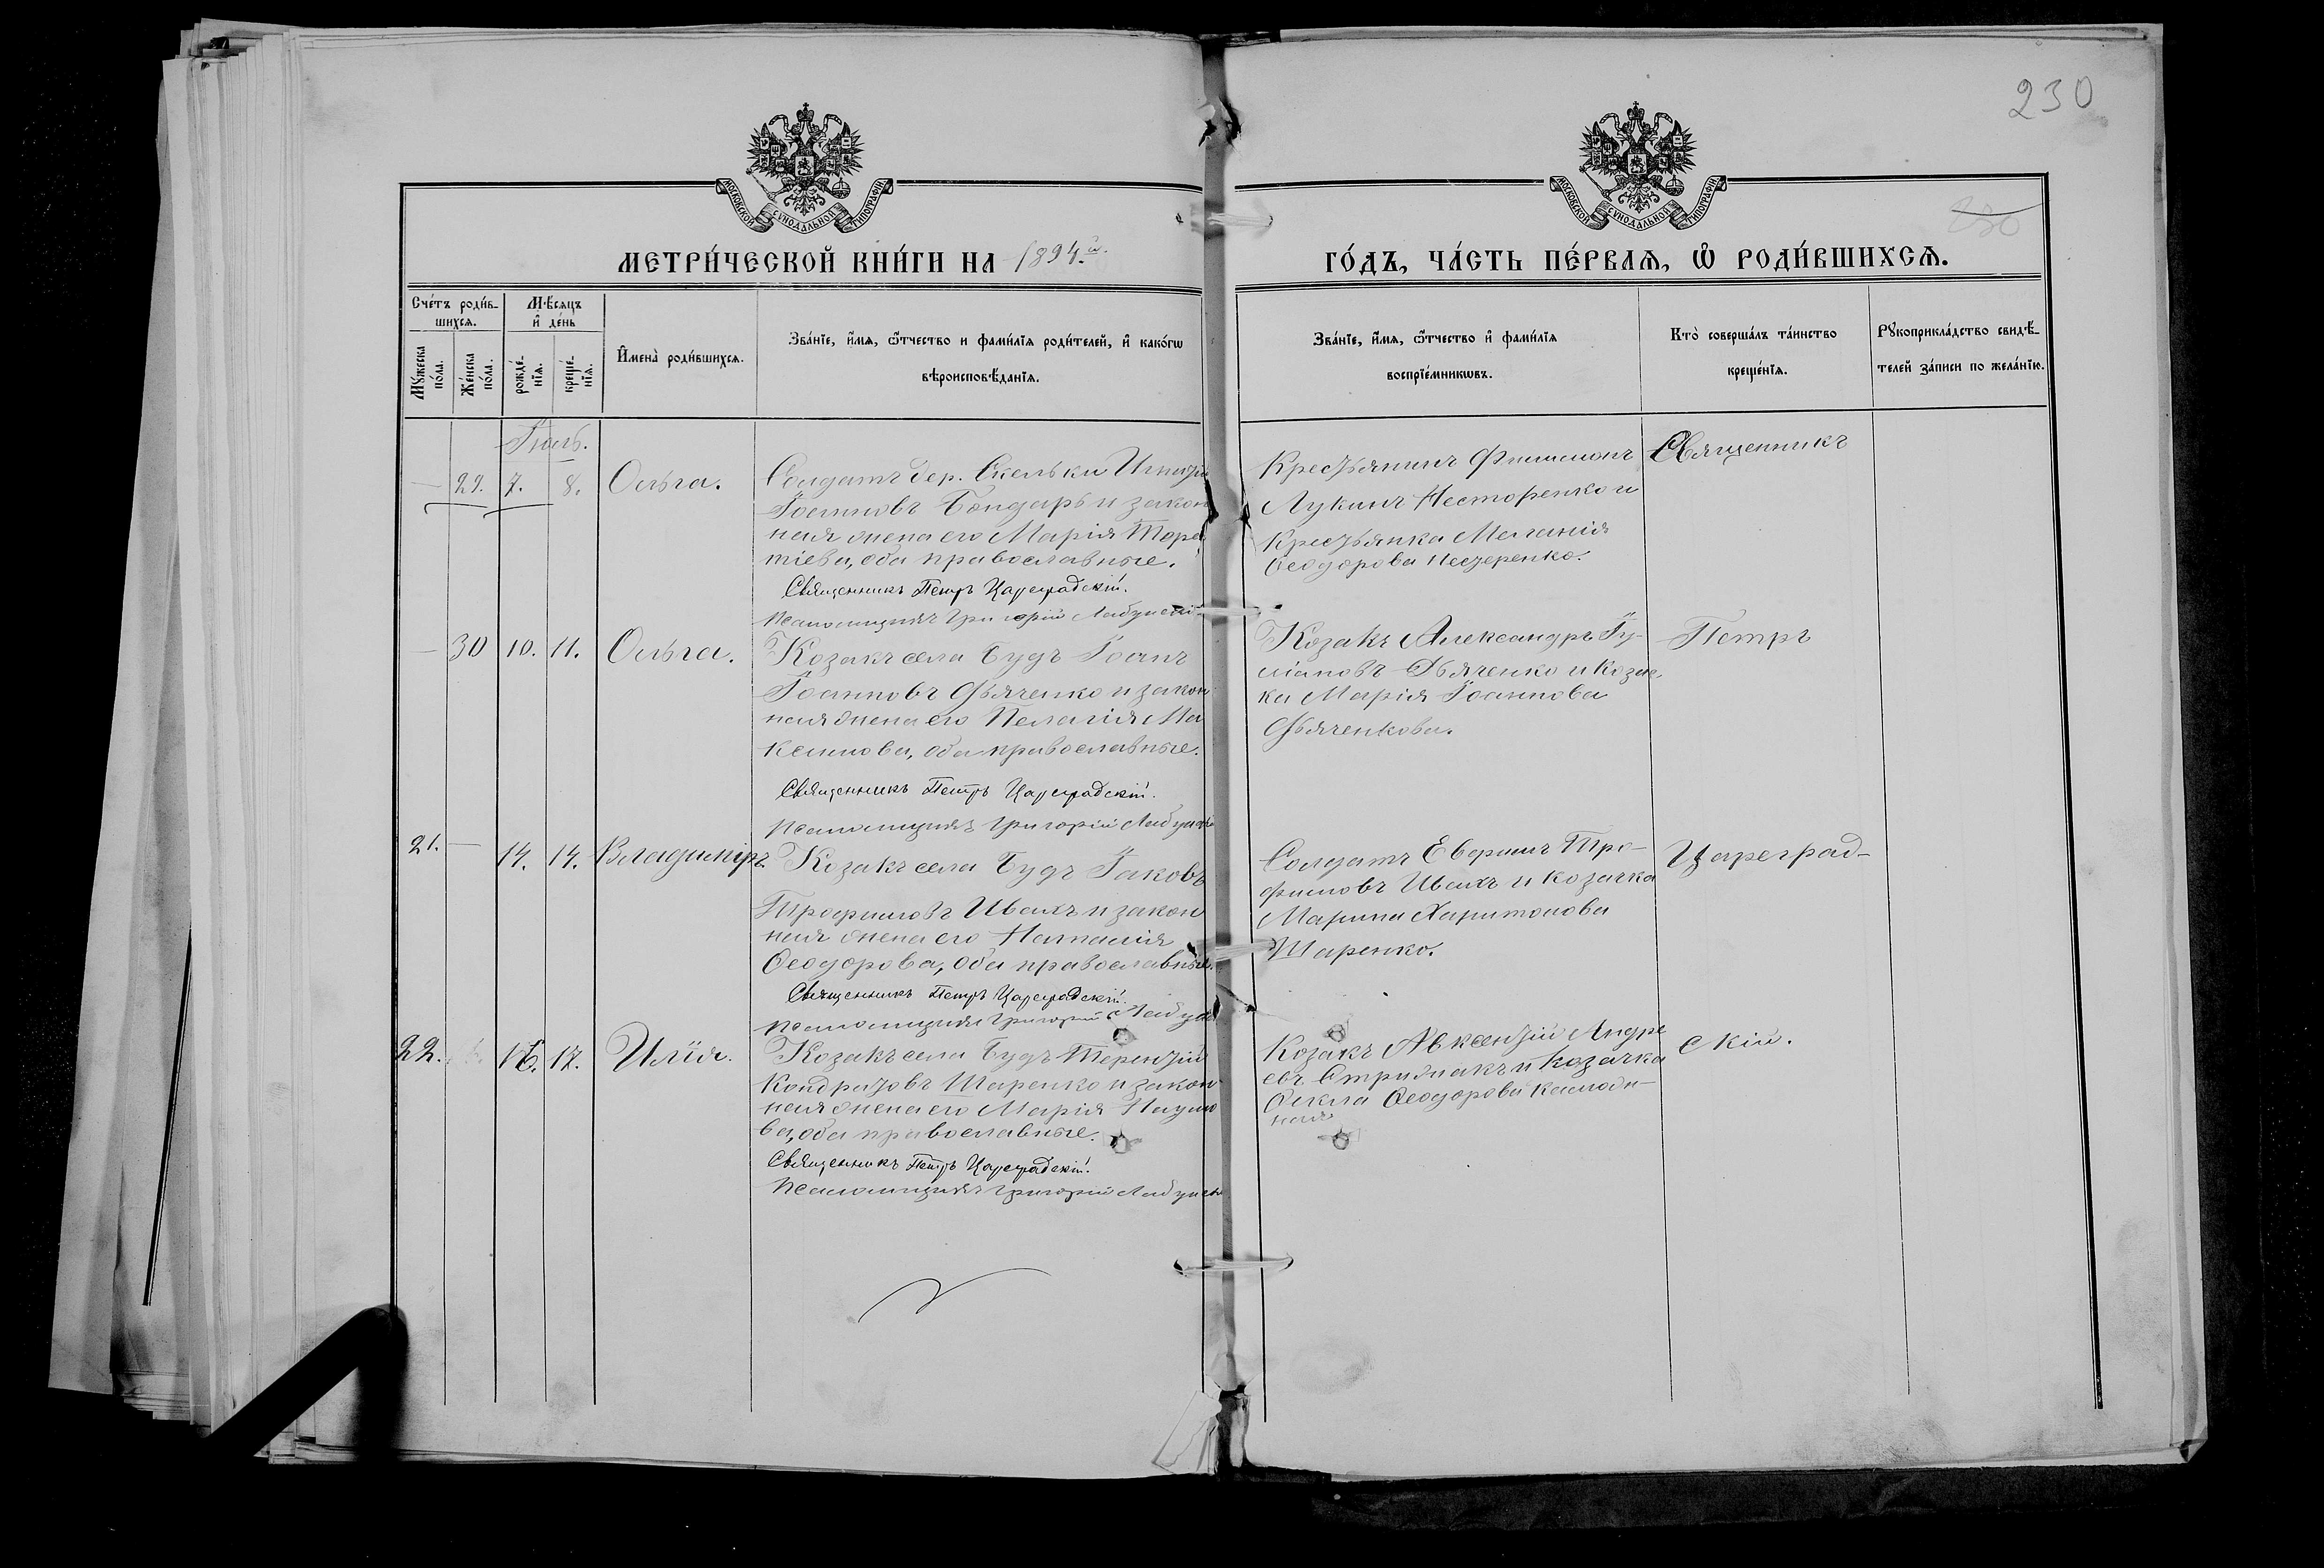 230
230
МОСКОВСКОЙ СУНОДАЛЬНОЙ ТИПОГРАФІИ
МОСКОВСКОЙ СУНОДАЛЬНОЙ ТИПОГРАФІИ
МЕТРИ́ЧЕСКОЙ КНИ́ГИ НА 1894.й
ГО́ДЪ, ЧА́СТЬ ПЕ́РВАѦ, Ѽ РОДИ́ВШИХСѦ.
Сче́тъ роди́в-
шихсѧ.
Мꙋ́жеска по́ла.
Же́нска по́ла.
Мѣ́сѧцъ
и҆ де́нь
рожде́-
нїѧ.
креще́-
нїѧ.
И҆мена̀ роди́вшихсѧ.
Зва́нїе, и҆́мѧ, ѻ҆́тчество и фами́лїѧ роди́телей, и҆ како́гѡ
вѣроисповѣ́данїѧ.
Зва́нїе, и҆́мѧ, ѻ҆́тчество и҆ фами́лїѧ
воспрїе́мникѡвъ.
Кто̀ соверша́лъ та́инство
креще́нїѧ.
Рꙋкоприкла́дство свидѣ́-
телей за́писи по жела́нїю.
Іюль.
— 29. 7. 8. Ольга.
Солдатъ дер. Скельки
Іоанновъ Бондарь и закон
ная жена его Марія Торен
тіева, оба православные.
Священникъ Петръ Цареградскій.
Псаломщикъ Григорій
Крестьянинъ Филимонъ
Лукинъ Несторенко и
крестьянка Меланія
Ѳеодорова
Священникъ
— 30 10. 11. Ольга.
Козакъ села Будъ Іоаннъ
Іоанновъ Дьяченко и закон
ная жена его Пелагія Ма
ксимова, оба православные.
Священникъ Петръ Цареградскій.
Псаломщикъ Григорій
Козакъ Александръ Іу-
ліановъ Дьяченко и козач
ка Марія Іоаннова
Дьяченкова.
Петръ
21. — 14. 14. Владиміръ.
Козакъ села Будъ Іаковъ
Трофимовъ Ивахъ и закон
ная жена его Наталія
Ѳеодорова, оба православные.
Священникъ Петръ Цареградскій.
Псаломщикъ Григорій
Солдатъ Тро-
фимовъ Ивахъ и козачка
Марина Харитонова
Шаренко.
Цареград-
22. 16. 17. Илія.
Козакъ села Будъ Терентій
Кондратовъ Шаренко и закон
ная жена его Марія Наумо
ва, оба православные.
Священникъ Петръ Цареградскій.
Псаломщикъ Григорій
Козакъ Авксентій Андре
евъ Стрижакъ и козачка
Ѳекла Ѳеодорова
скій.